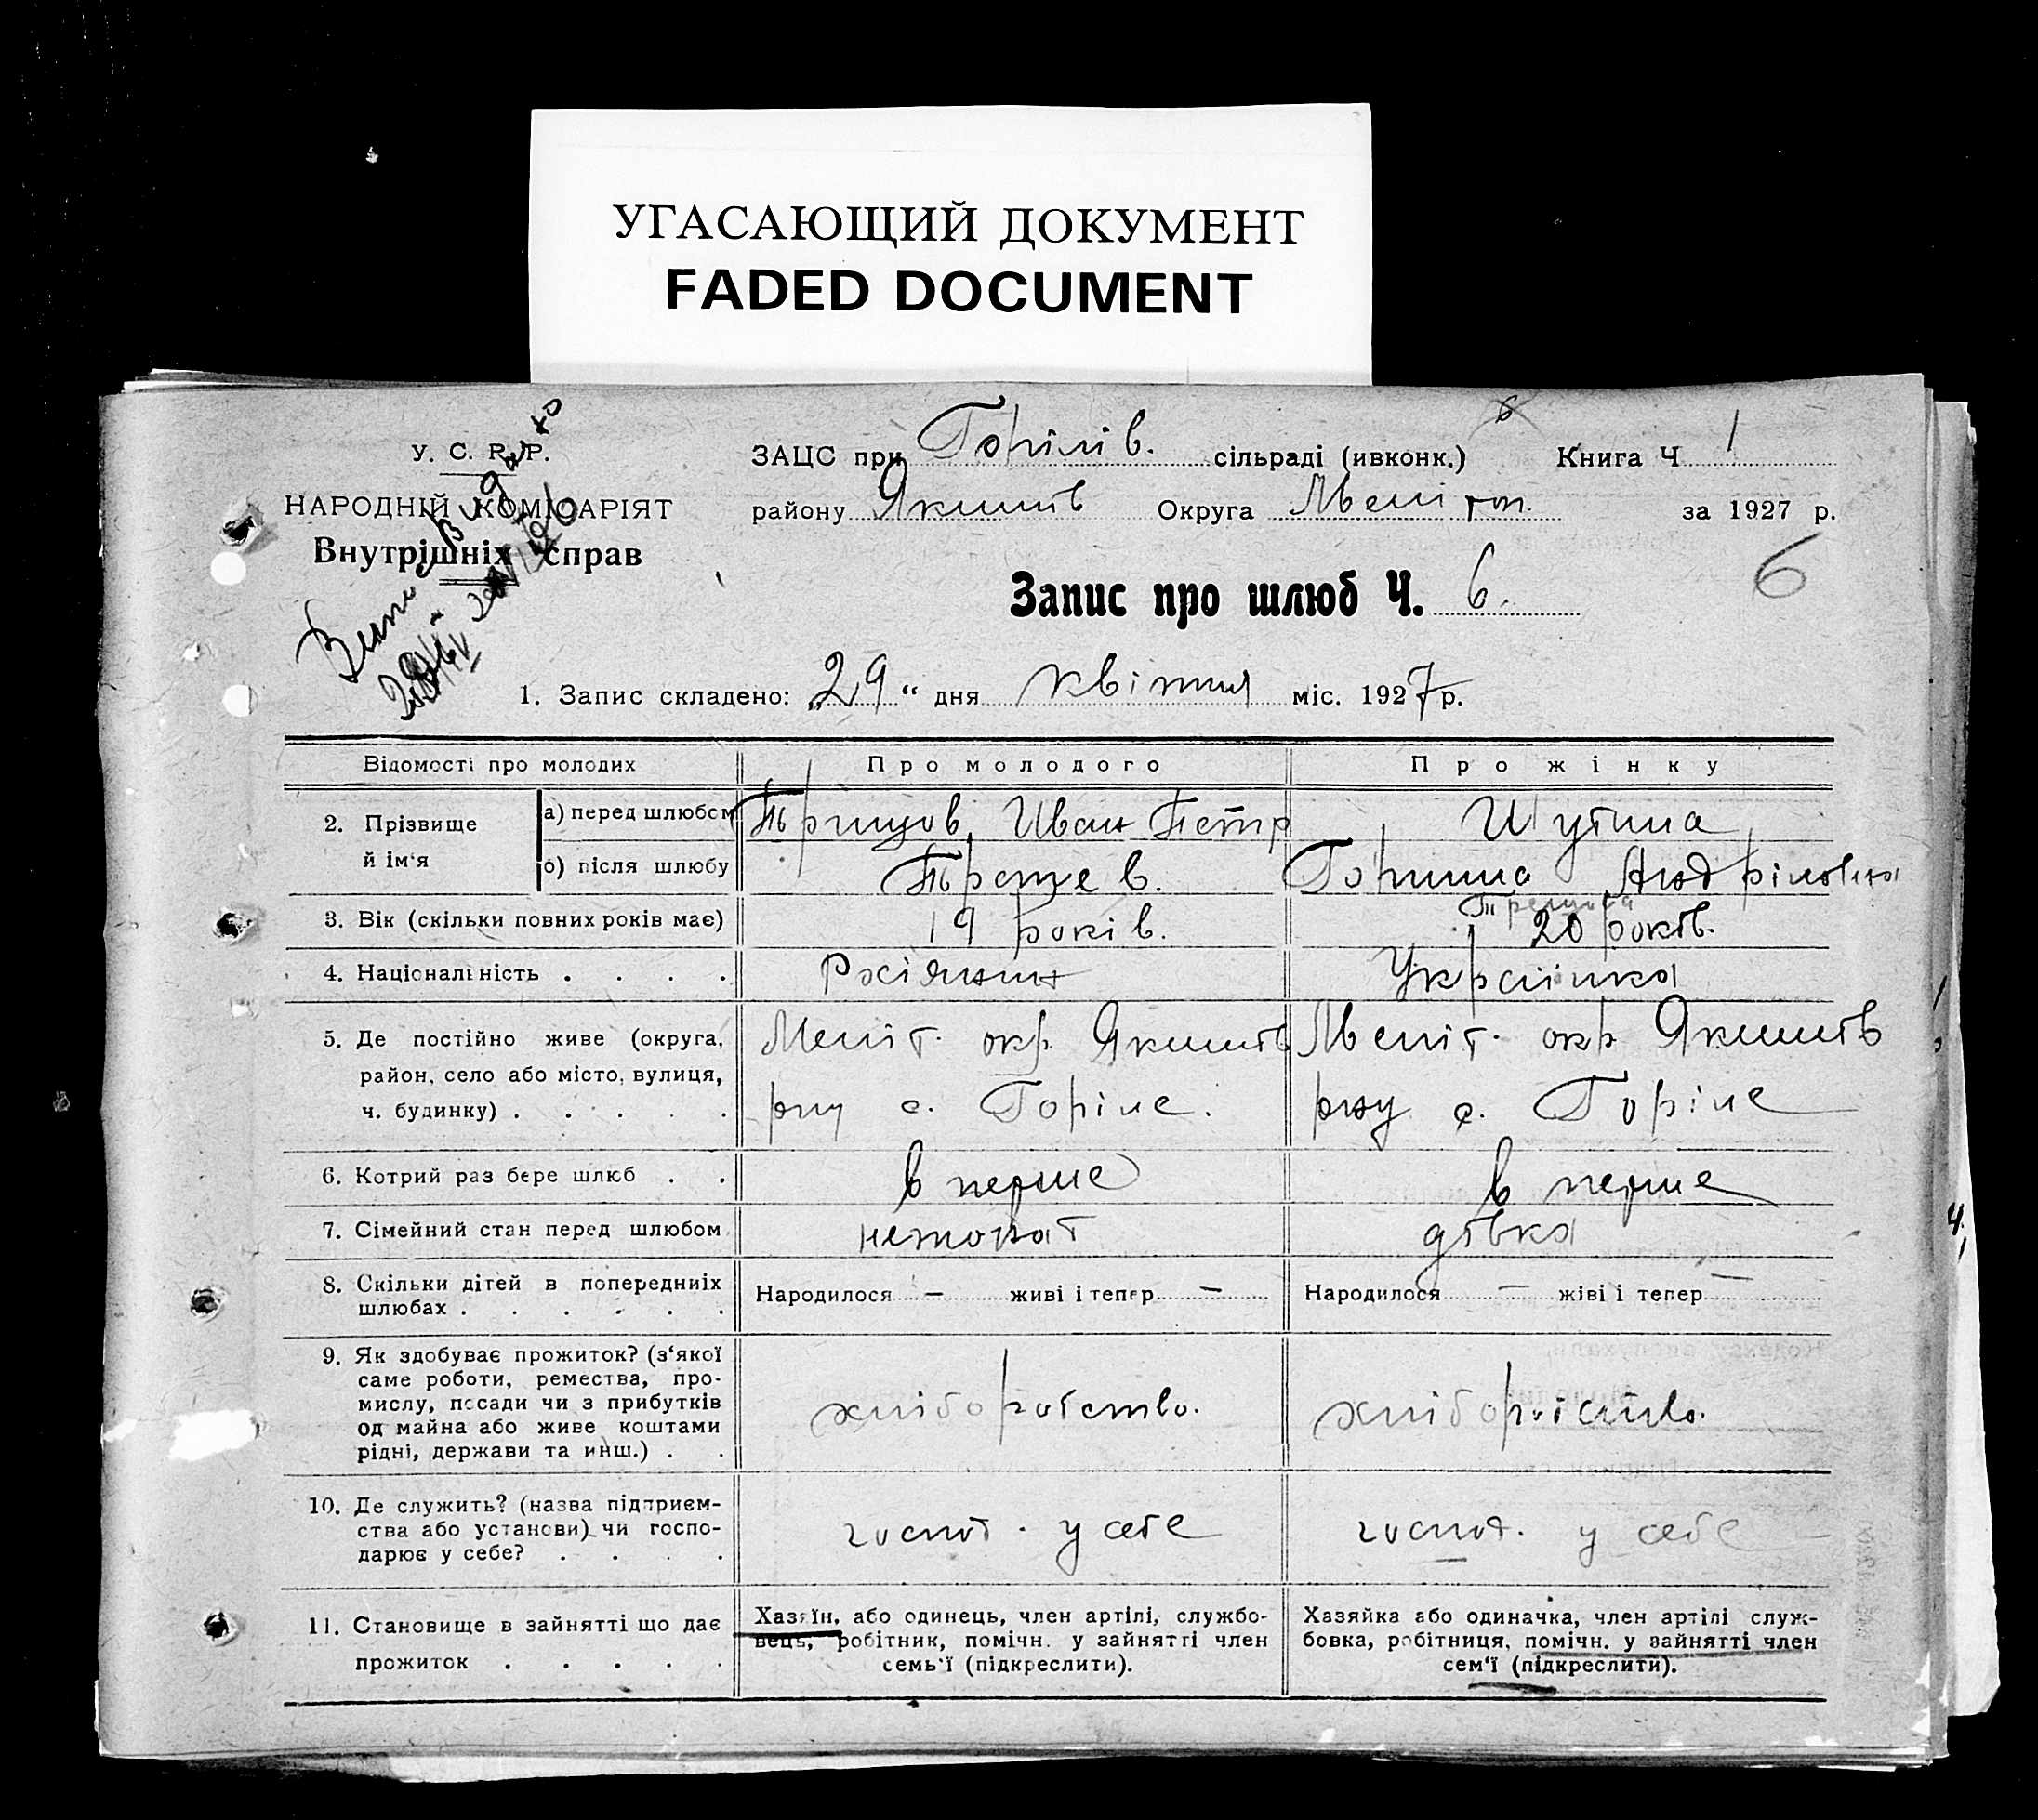 УГАСАЮЩИЙ ДОКУМЕНТ
FADED DOCUMENT
У. С. Р. Р.
НАРОДНІЙ КОМІСАРІЯТ
Внутрішніх справ
ЗАЦС при Горілів. сільраді (ивконк.) Книга Ч 1
району Якимів Округа Меліт оп. за 1927 р.
6
Запис про шлюб Ч. 6.
1. Запис складено: „29“ дня квітня міс. 1927 р.
Відомості про молодих Про молодого Про жінку
2. Прізвище й ім‘я
а) перед шлюбом Иван Петр Шутина
б) після шлюбу
3. Вік (скільки повних років має) 19 років. 20 років.
4. Національність . . . . Росіянин Українка
5. Де постійно живе (округа, Меліт. окр. Якимів Меліт. окр Якимів
район, село або місто, вулиця,
ч. будинку) . . . . . рну с. Горіле. рну с. Горіле
6. Котрий раз бере шлюб . . в перше в перше
7. Сімейний стан перед шлюбом нежонат дівка
8. Скільки дітей в попередниіх Народилося — живі і тепер — Народилося — жіві і тепер —
шлюбах . . . . . .
9. Як здобуває прожиток? (з‘якої
саме роботи, ремества, про-
мислу, посади чи з прибутків
од майна або живе коштами
рідні, держави та инш.) . . хліборобство. хліборобство.
10. Де служить? (назва підприєм-
ства або установи) чи госпо- господ. у себе господ. у себе
дарює у себе? . . . .
11. Становище в зайнятті що дає
прожиток . . . . .
Хазяїн, або одинець, член артілі, службо-
вець, робітник, помічн. у зайнятті член
семь‘ї (підкреслити).
Хазяйка або одиначка, член артілі служ-
бовка, робітниця, помічн. у зайнятті член
сем‘ї (підкреслити).